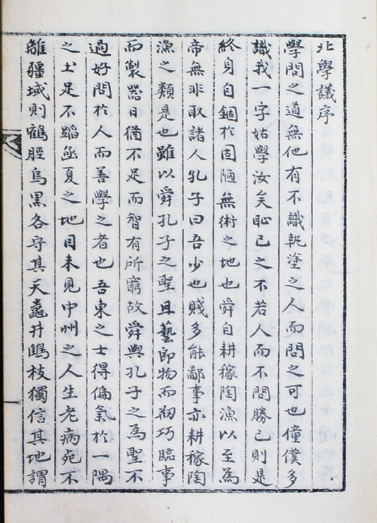 北學議序
學問之道無他有不識執塗之人而問之可也僮僕多
識我一字姑學汝矣恥己之不若人而不問勝己則是
終身自錮於固陋無術之地也舜自耕稼陶漁以至為
帝無非取諸人孔子曰吾少也賤多能鄙事亦耕稼陶
漁之類是也雖以舜孔子之聖且藝即物而刱巧臨事
而製器日猶不足而智有所窮故舜與孔子之為聖不
過好問於人而善學之者也吾東之士得偏氣於一隅
之土足不蹈凾夏之地目未見中州之人生老病死不
離疆域則鶴脛烏黑各守其天蠡井鷦枝獨信其地謂